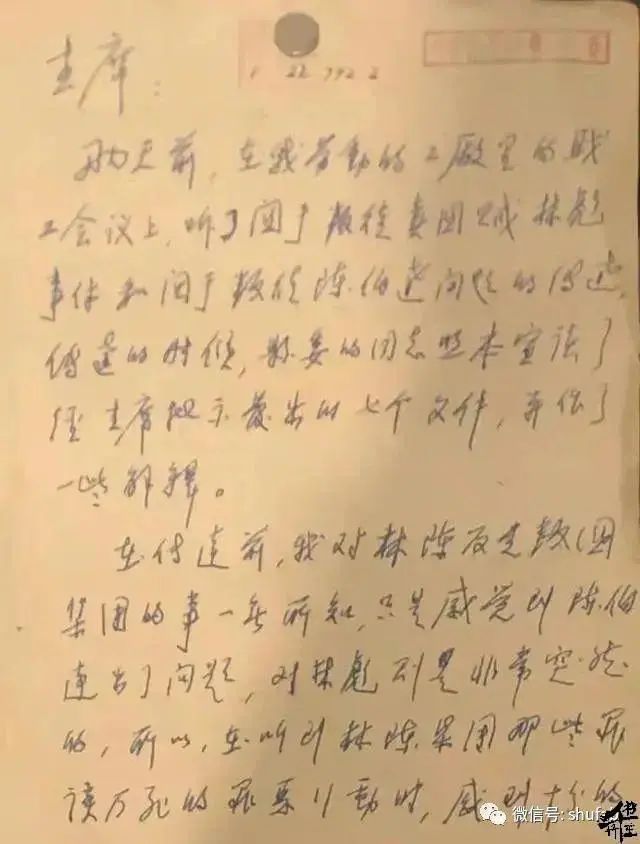 主席：
前天前，在我劳动的工厂里的职
工会议上，听了関于叛徒卖国贼林彪
事件和関于叛徒陈伯達问题的传達。
傳達的时候，县委的同志照本宣读了
经主席批示發出的七个文件，並作了
一些解釋。
在传達前，我对林陈反党叛国
集团的事一无所知，只是感觉到陈伯
達出了问题，对林彪则是非常突然
的，所以，在听到林陈集团那些罪
该万死的罪恶行動时，感到十分的
微信号: shufa